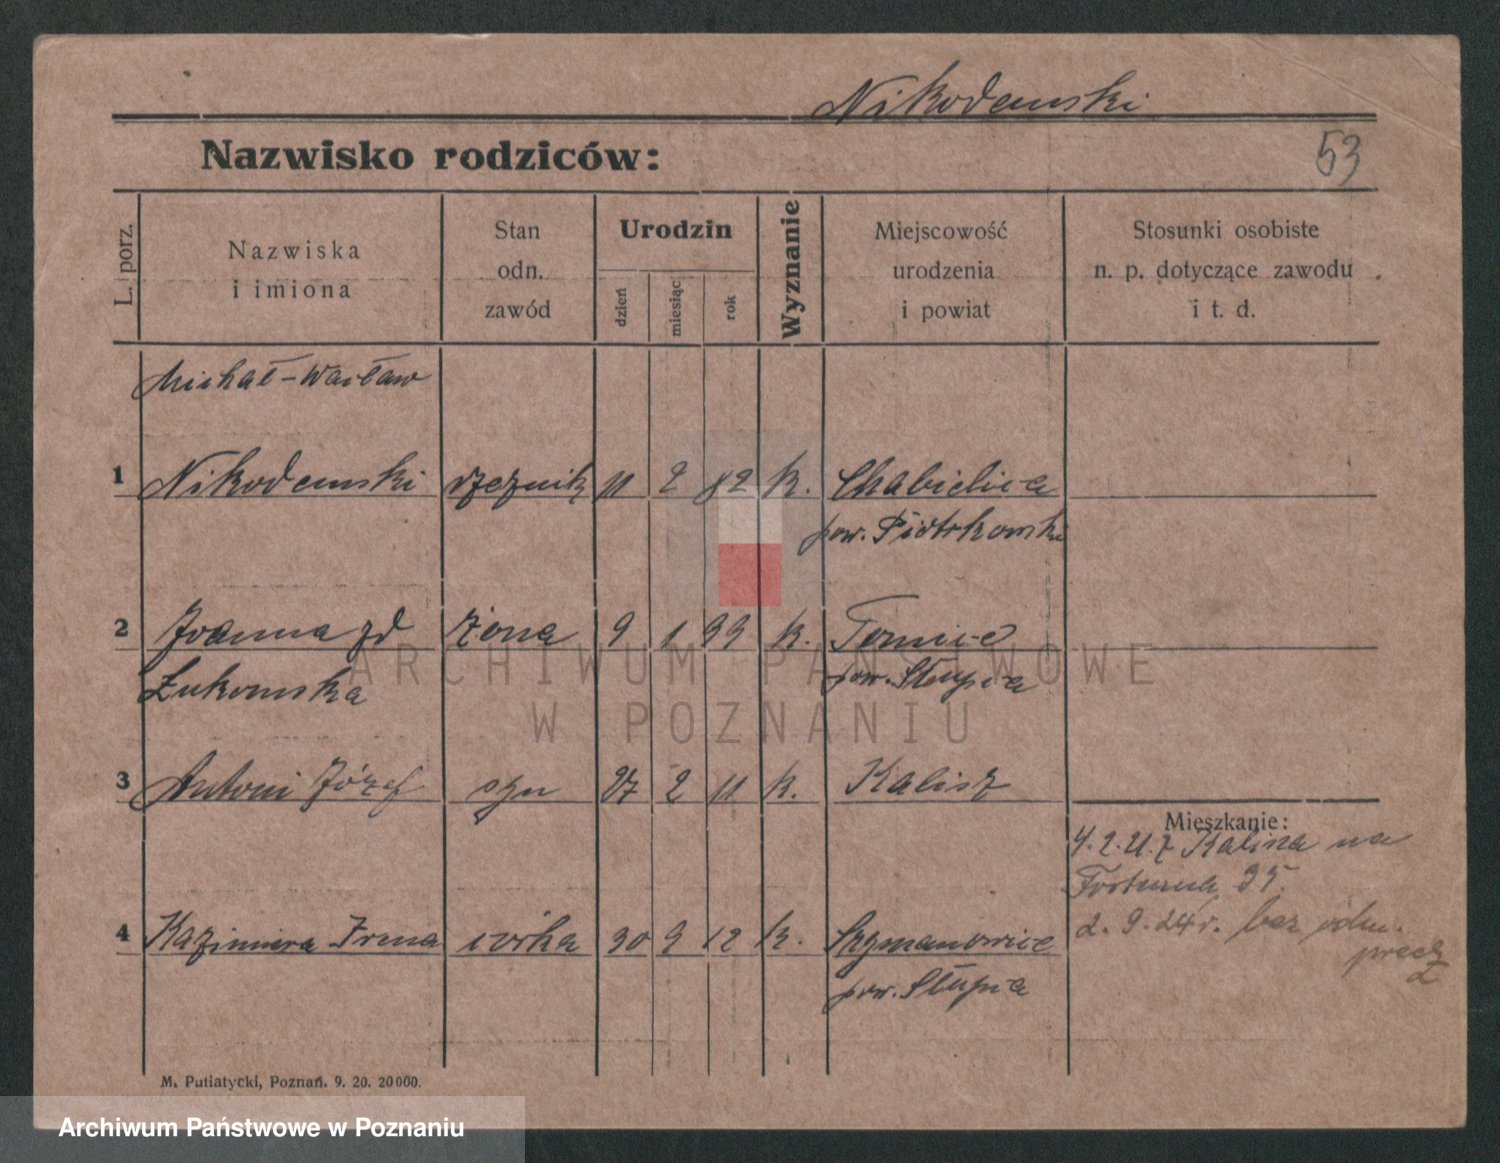 Nikodemski
Nazwisko rodziców:
53
L. porz.
Nazwiska
i imiona
Stan
odn.
zawód
Urodzin
dzień
miesiąc
rok
Wyznanie
Miejscowość
urodzenia
i powiat
Stosunki osobiste
n. p. dotyczące zawodu
i t. d.
Michał-Wacław
1 Nikodemski rzeznik 11 2 82 k. Chabielice
pow. Piotrkowski
2 Joanna zd żona 9 1 93 k.
Łukomska pow. Słupca
3 Antoni Józef syn 27 2 11 k. Kalisz
Mieszkanie:
4.2.21. z Kalisza na
35.
4 Kazimiera Irena córka 30 9 12 k. Szymanowice
2.9.24 r. bez odm.
pow. Słupca
M. Putiatycki, Poznań. 9. 20. 20000.
ARCHIWUM PAŃSTWOWE
W POZNANIU
Archiwum Państwowe w Poznaniu